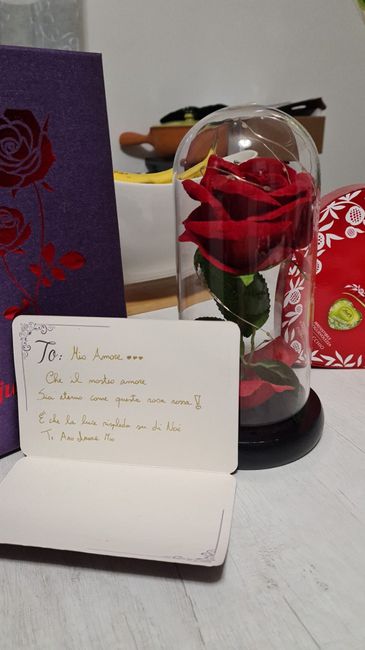 To: Mio Amore ♥♥♥
Che il nostro amore
Sia eterno come questa rosa rossa!
E che la luce risplenda su di Noi
Ti Amo Amore Mio